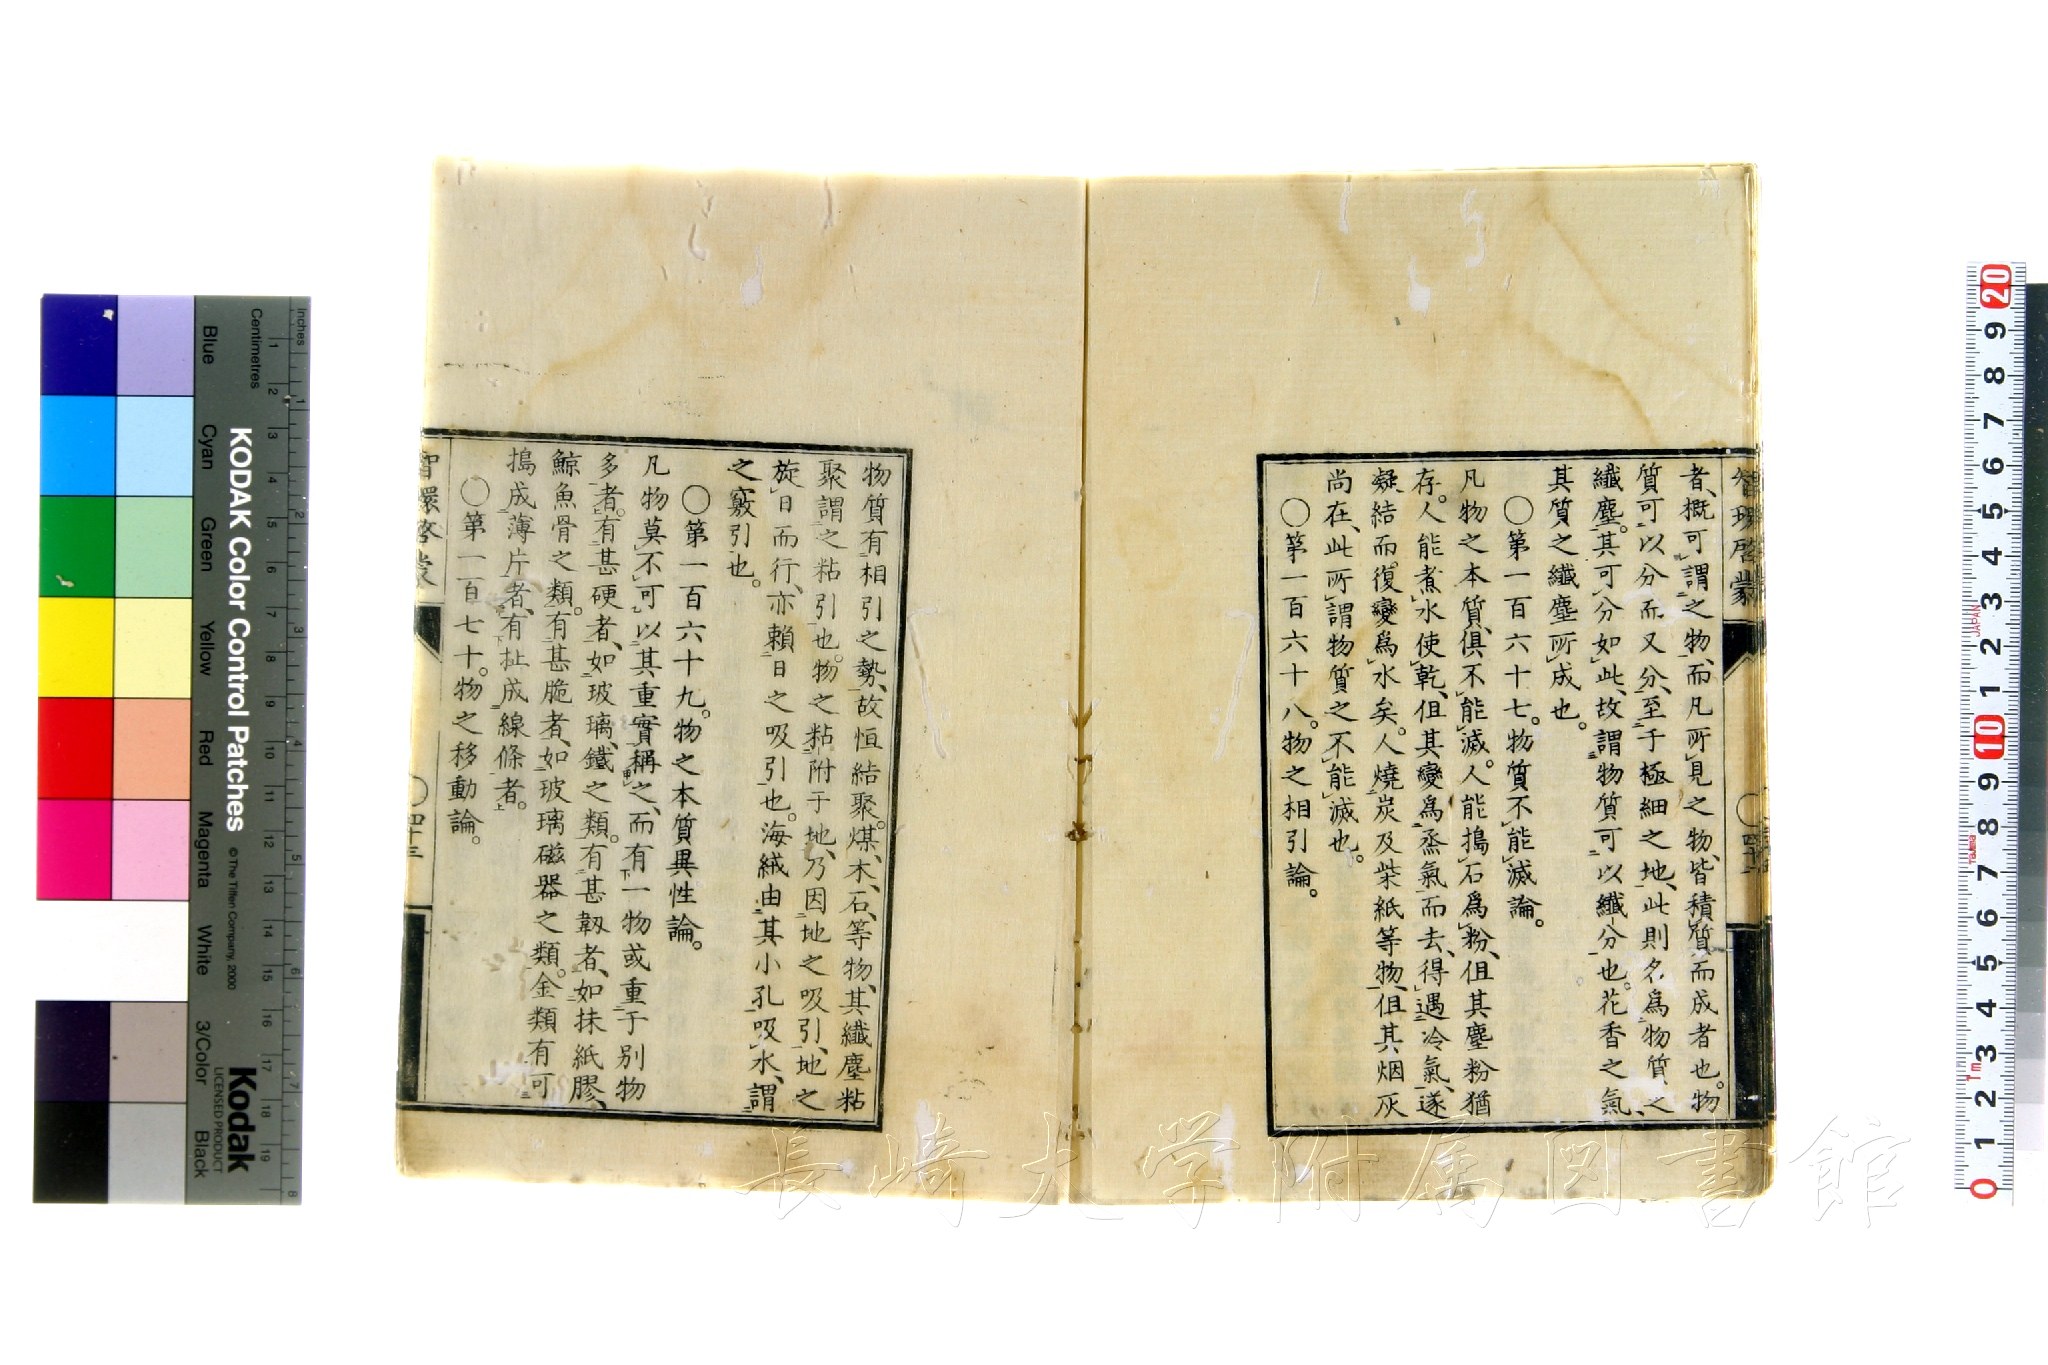 智環啓蒙
〇四十二
者、概可謂之物、而凡所見之物、皆積質而成者也。物
質可以分而又分、至于極細之地、此則名爲物質之
纖塵。其可分如此、故謂物質可以纖分也。花香之氣、
其質之纖塵所成也。
〇第一百六十七。物質不能滅論。
凡物之本質、俱不能滅。人能搗石爲粉、但其塵粉猶
存。人能煮水使乾、但其變爲烝氣而去、得遇冷氣、遂
凝結而復變爲水矣。人燒炭及柴紙等物、但其烟灰
尚在、此所謂物質之不能滅也。
〇第一百六十八。物之相引論。
物質有相引之勢、故恒結聚。煤、木、石、等物、其纖塵粘
聚謂之粘引也。物之粘附于地、乃因地之吸引、地之
旋日而行、亦賴日之吸引也。海絨由其小孔吸水、謂
之竅引也。
〇第一百六十九。物之本質異性論。
凡物莫不可以其重實稱之、而有一物或重于別物
多者。有甚硬者、如玻璃、鐵之類。有甚韌者、如抹紙膠、
鯨魚骨之類。有甚脆者、如玻璃磁器之類。金類有可
搗成薄片者、有扯成線條者。
〇第一百七十。物之移動論。
智環啓蒙
〇四十三
KODAK Color Control Patches
© The Tiffen Company, 2000
Kodak
LICENSED PRODUCT
Inches
Centimetres
Blue
Cyan
Green
Yellow
Red
Magenta
White
3/Color
Black
JAPAN
長崎大学附属図書館